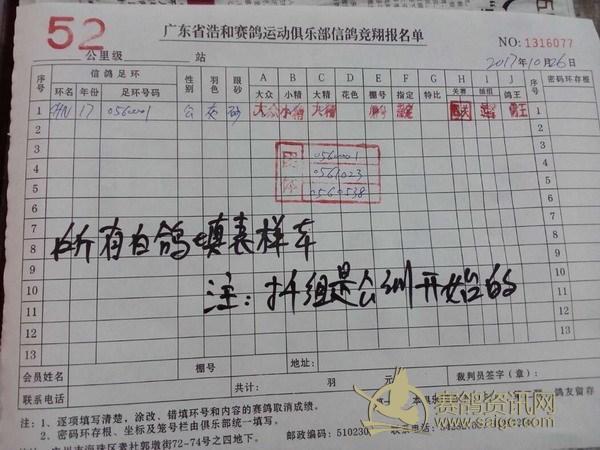 52
广东省浩和赛鸽运动俱乐部信鸽竞翔报名单
NO:1316077
公里级 站
2017年10月26日
序号 信鸽足环 性别 羽色 眼砂 A B C D E F G H I J 序号 密码环存根
环名 年份 足环号码 大众 小精 大精 花色 棚号 指定 特比 关赛 插组 鸽王
1 CHN 17 0560001 公 灰 砂 大众 小精 大精 指定 鸽王 1
2 2
3 0560001 3
4 0561023 4
5 0560538 5
6 6
7 7
8 所有白鸽填表样本 8
9 9
10 注: 插组是公训开始的 10
11 11
12 12
13 13
会员姓名 棚号 地址: 裁判员签字(章):
联系电话 共计: 羽 元
鸽友留存
注: 1、逐项填写清楚,涂改、错填环号和内容的赛鸽取消成绩。
2、密码环存根、坐标及笼号栏由俱乐部统一填写。
72-74号之四地下。 邮政编码: 51023
赛鸽资讯网
www.saige.com